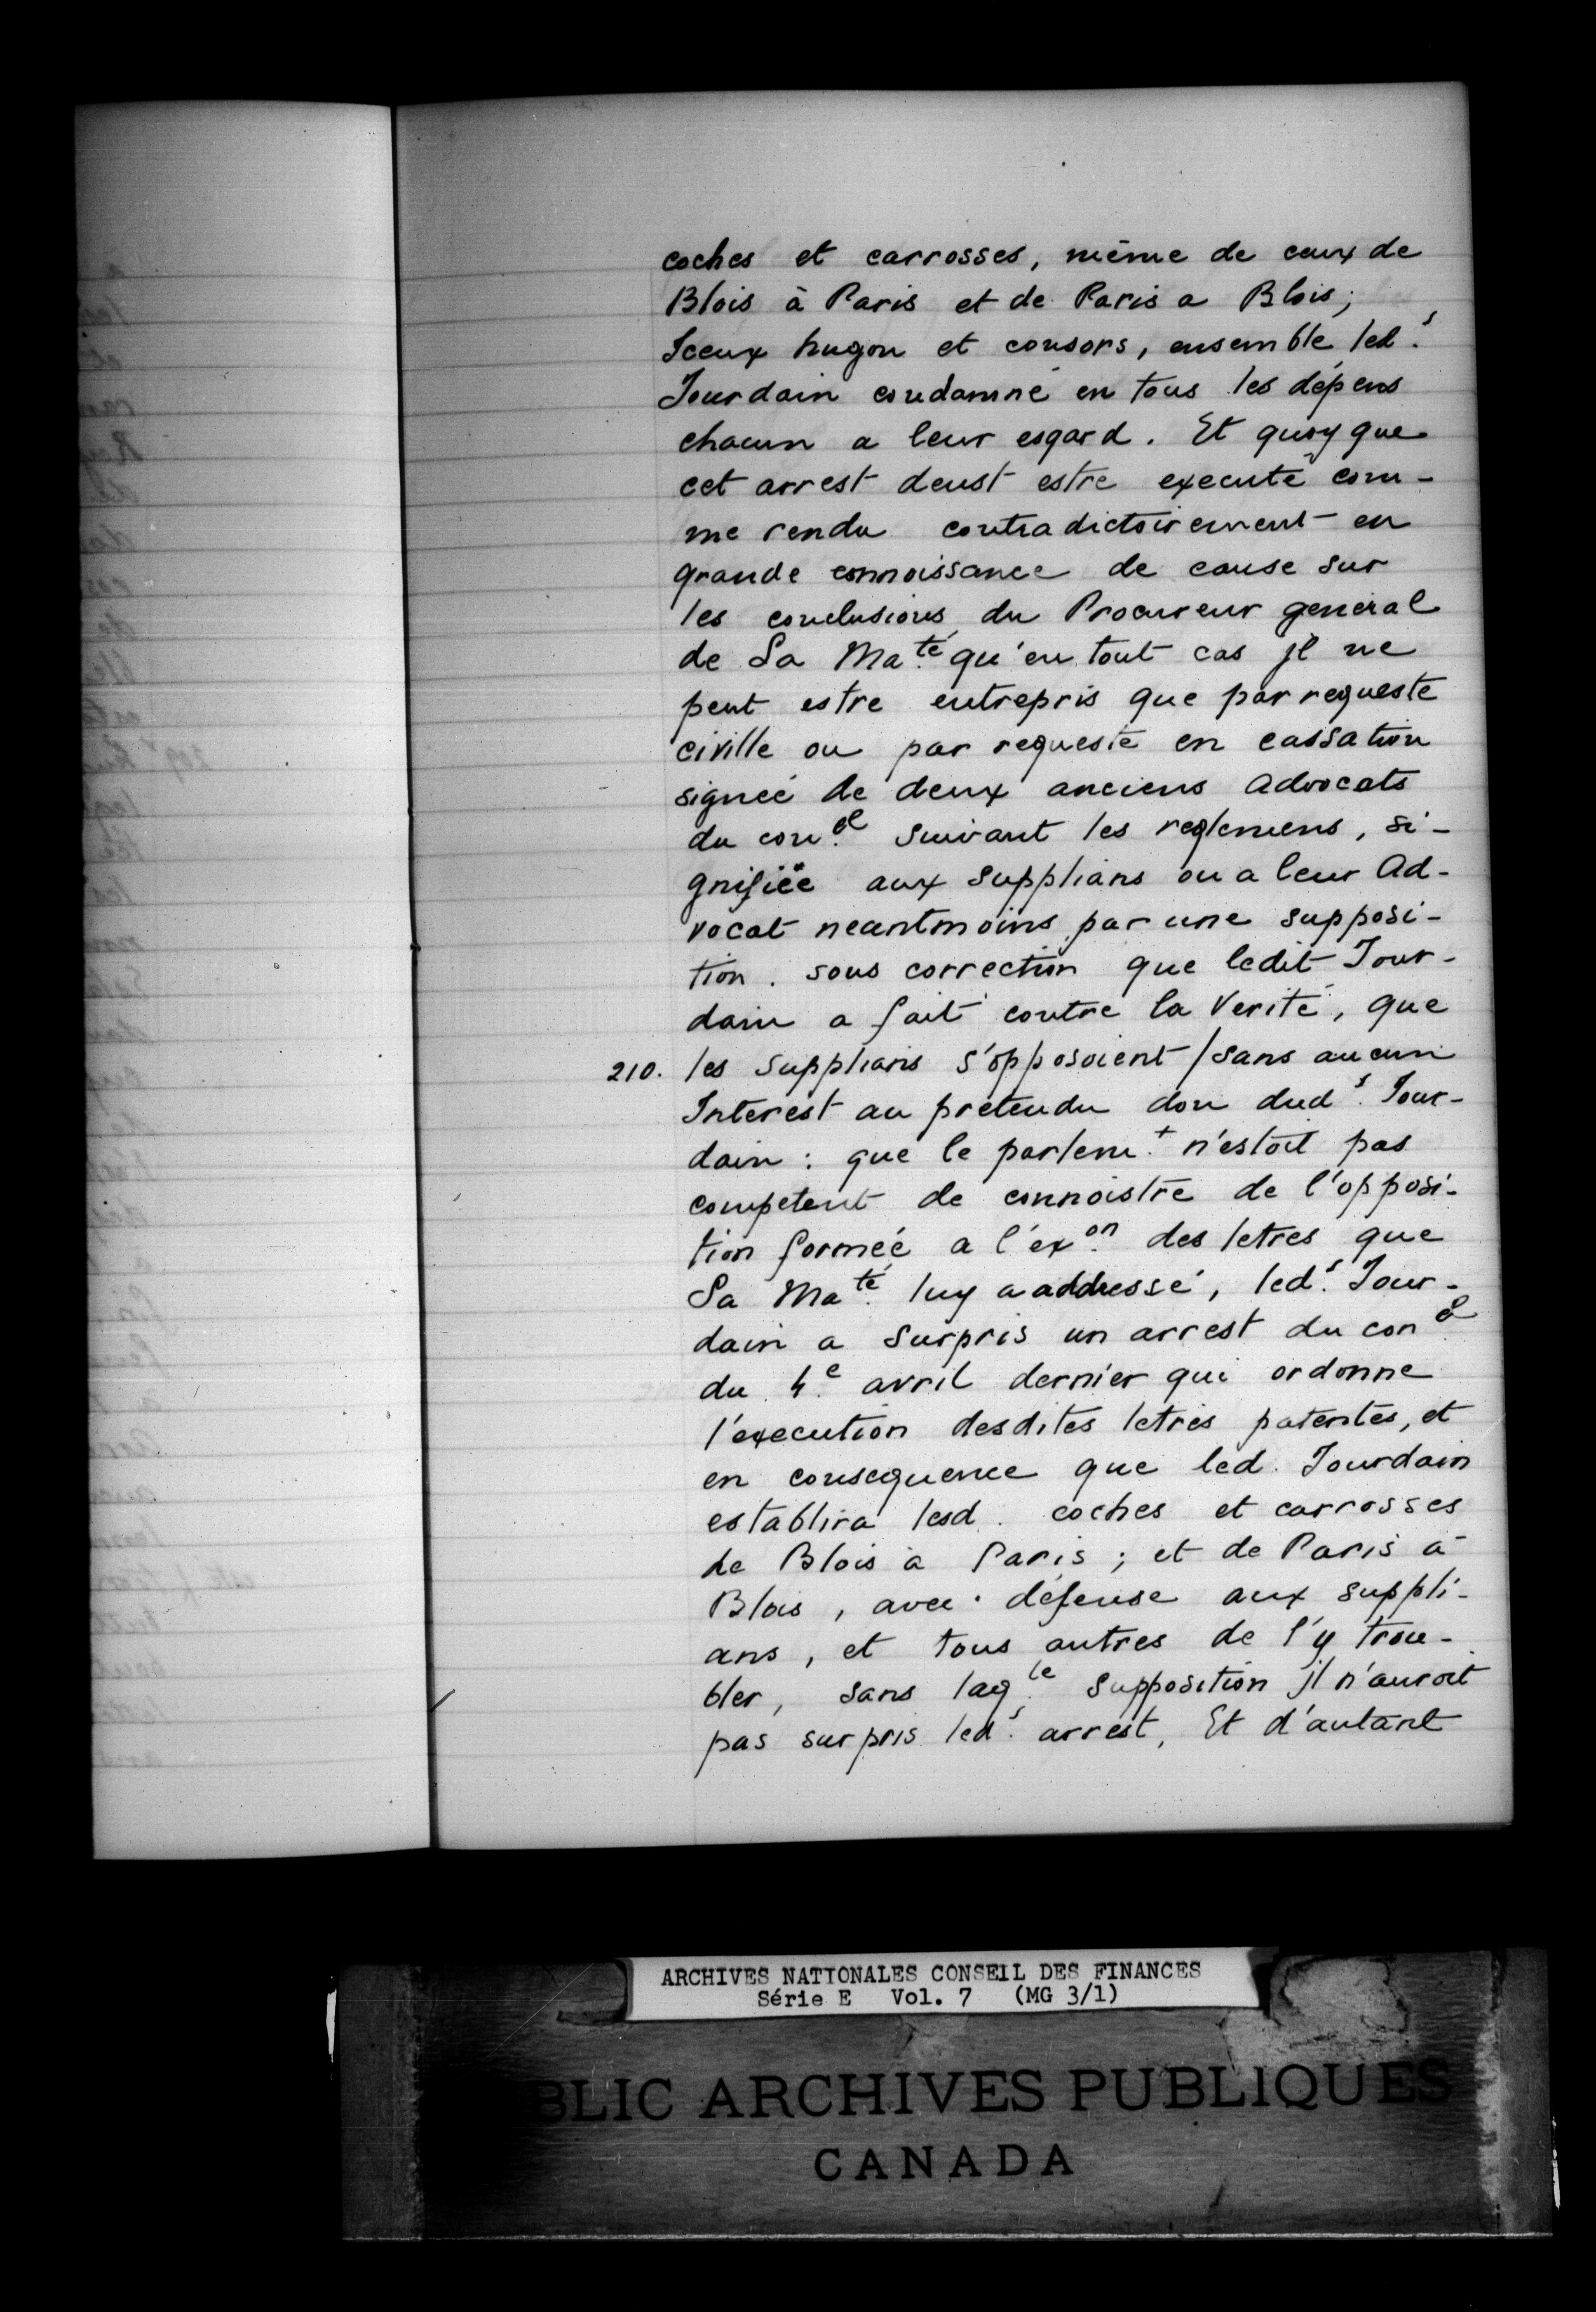 coches et carrosses, même de ceux de
Blois à Paris et de Paris a Blois;
Iceux hugon et consors, ensemble led.s
Jourdain condamné en tous les dépens
chacun a leur esgard. Et quoy que
cet arrest deust estre executé com-
me rendu contradictoirement en
grande connoissance de cause sur
les conclusions du Procureur general
de Sa Ma.té qu'en tout cas jl ne
peut estre entrepris que par requeste
civille ou par requeste en cassation
signeé de deux anciens advocats
du con.el suivant les reglemens, si-
gnifiée aux supplians ou a leur Ad-
vocat neantmoins par une supposi-
tion. sous correction que ledit Jour-
dain a fait contre la Verité, que
210. les supplians s'opposoient / sans aucun
Interest au prétendu don dud.s Jour-
dain : que le parlem.t n'estoit pas
competent de connoistre de l'opposi-
tion formeé a l'ex.on des letres que
Sa Ma.té luy a addressé, led.s Jour-
dain a surpris un arrest du con.el
du 4.e avril dernier qui ordonne
l'execution desdites letres patentes, et
en consequence que led. Jourdain
establira lesd. coches et carrosses
de Blois à Paris ; et de Paris à
Blois, avec défense aux suppli-
ans, et tous autres de l'y trou-
bler, sans laq.le supposition jl n'auroit
pas surpris led.s arrest, Et d'autant
ARCHIVES NATIONALES CONSEIL DES FINANCES
Série E Vol. 7 (MG 3/1)
BLIC ARCHIVES PUBLIQUES
CANADA